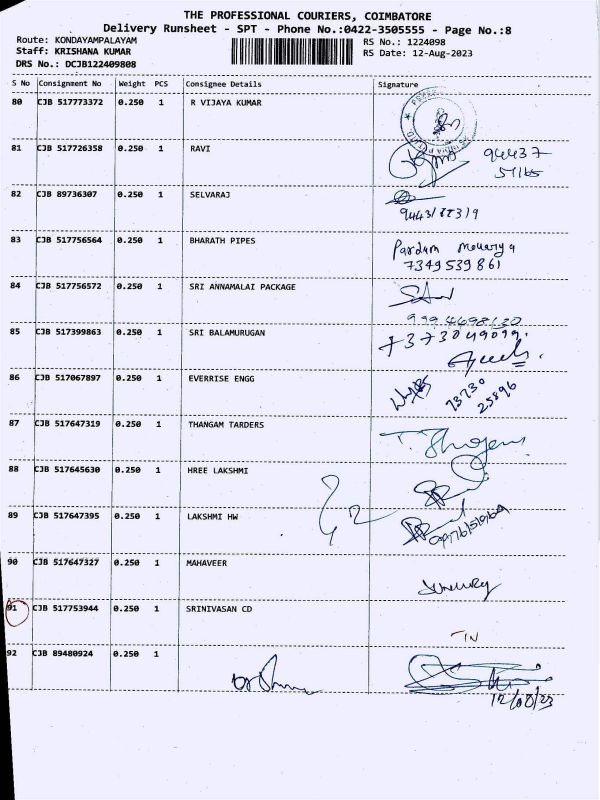 THE PROFESSIONAL COURIERS, COIMBATORE
Delivery Runsheet - SPT - Phone No.:0422-3505555 - Page No.:8
Route: KONDAYAMPALAYAM RS No.: 1224098
Staff: KRISHANA KUMAR RS Date: 12-Aug-2023
DRS No.: DCJB122409808
S No Consignment No Weight PCS Consignee Details Signature
80 CJB 517773372 0.250 1 R VIJAYA KUMAR
81 CJB 517726358 0.250 1 RAVI 94437
82 CJB 89736307 0.250 1 SELVARAJ
83 CJB 517756564 0.250 1 BHARATH PIPES
7349539861
84 CJB 517756572 0.250 1 SRI ANNAMALAI PACKAGE
9994698130
85 CJB 517399863 0.250 1 SRI BALAMURUGAN 7373049099.
86 CJB 517067897 0.250 1 EVERRISE ENGG 73730
25896
87 CJB 517647319 0.250 1 THANGAM TARDERS
88 CJB 517645630 0.250 1 HREE LAKSHMI
89 CJB 517647395 0.250 1 LAKSHMI HW
90 CJB 517647327 0.250 1 MAHAVEER
91 CJB 517753944 0.250 1 SRINIVASAN CD
IN
92 CJB 89480924 0.250 1
12/08/23